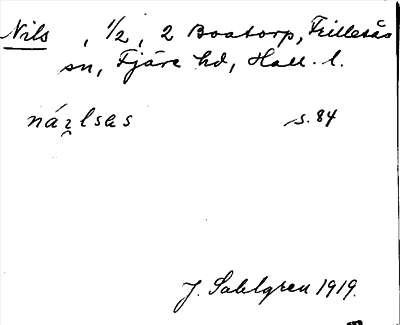 Nils, 1/2, 2 Boatorp, Frillesås
sn, Fjäre hd, Hall. l.
názlsəs s. 84
J. Sahlgren 1919.